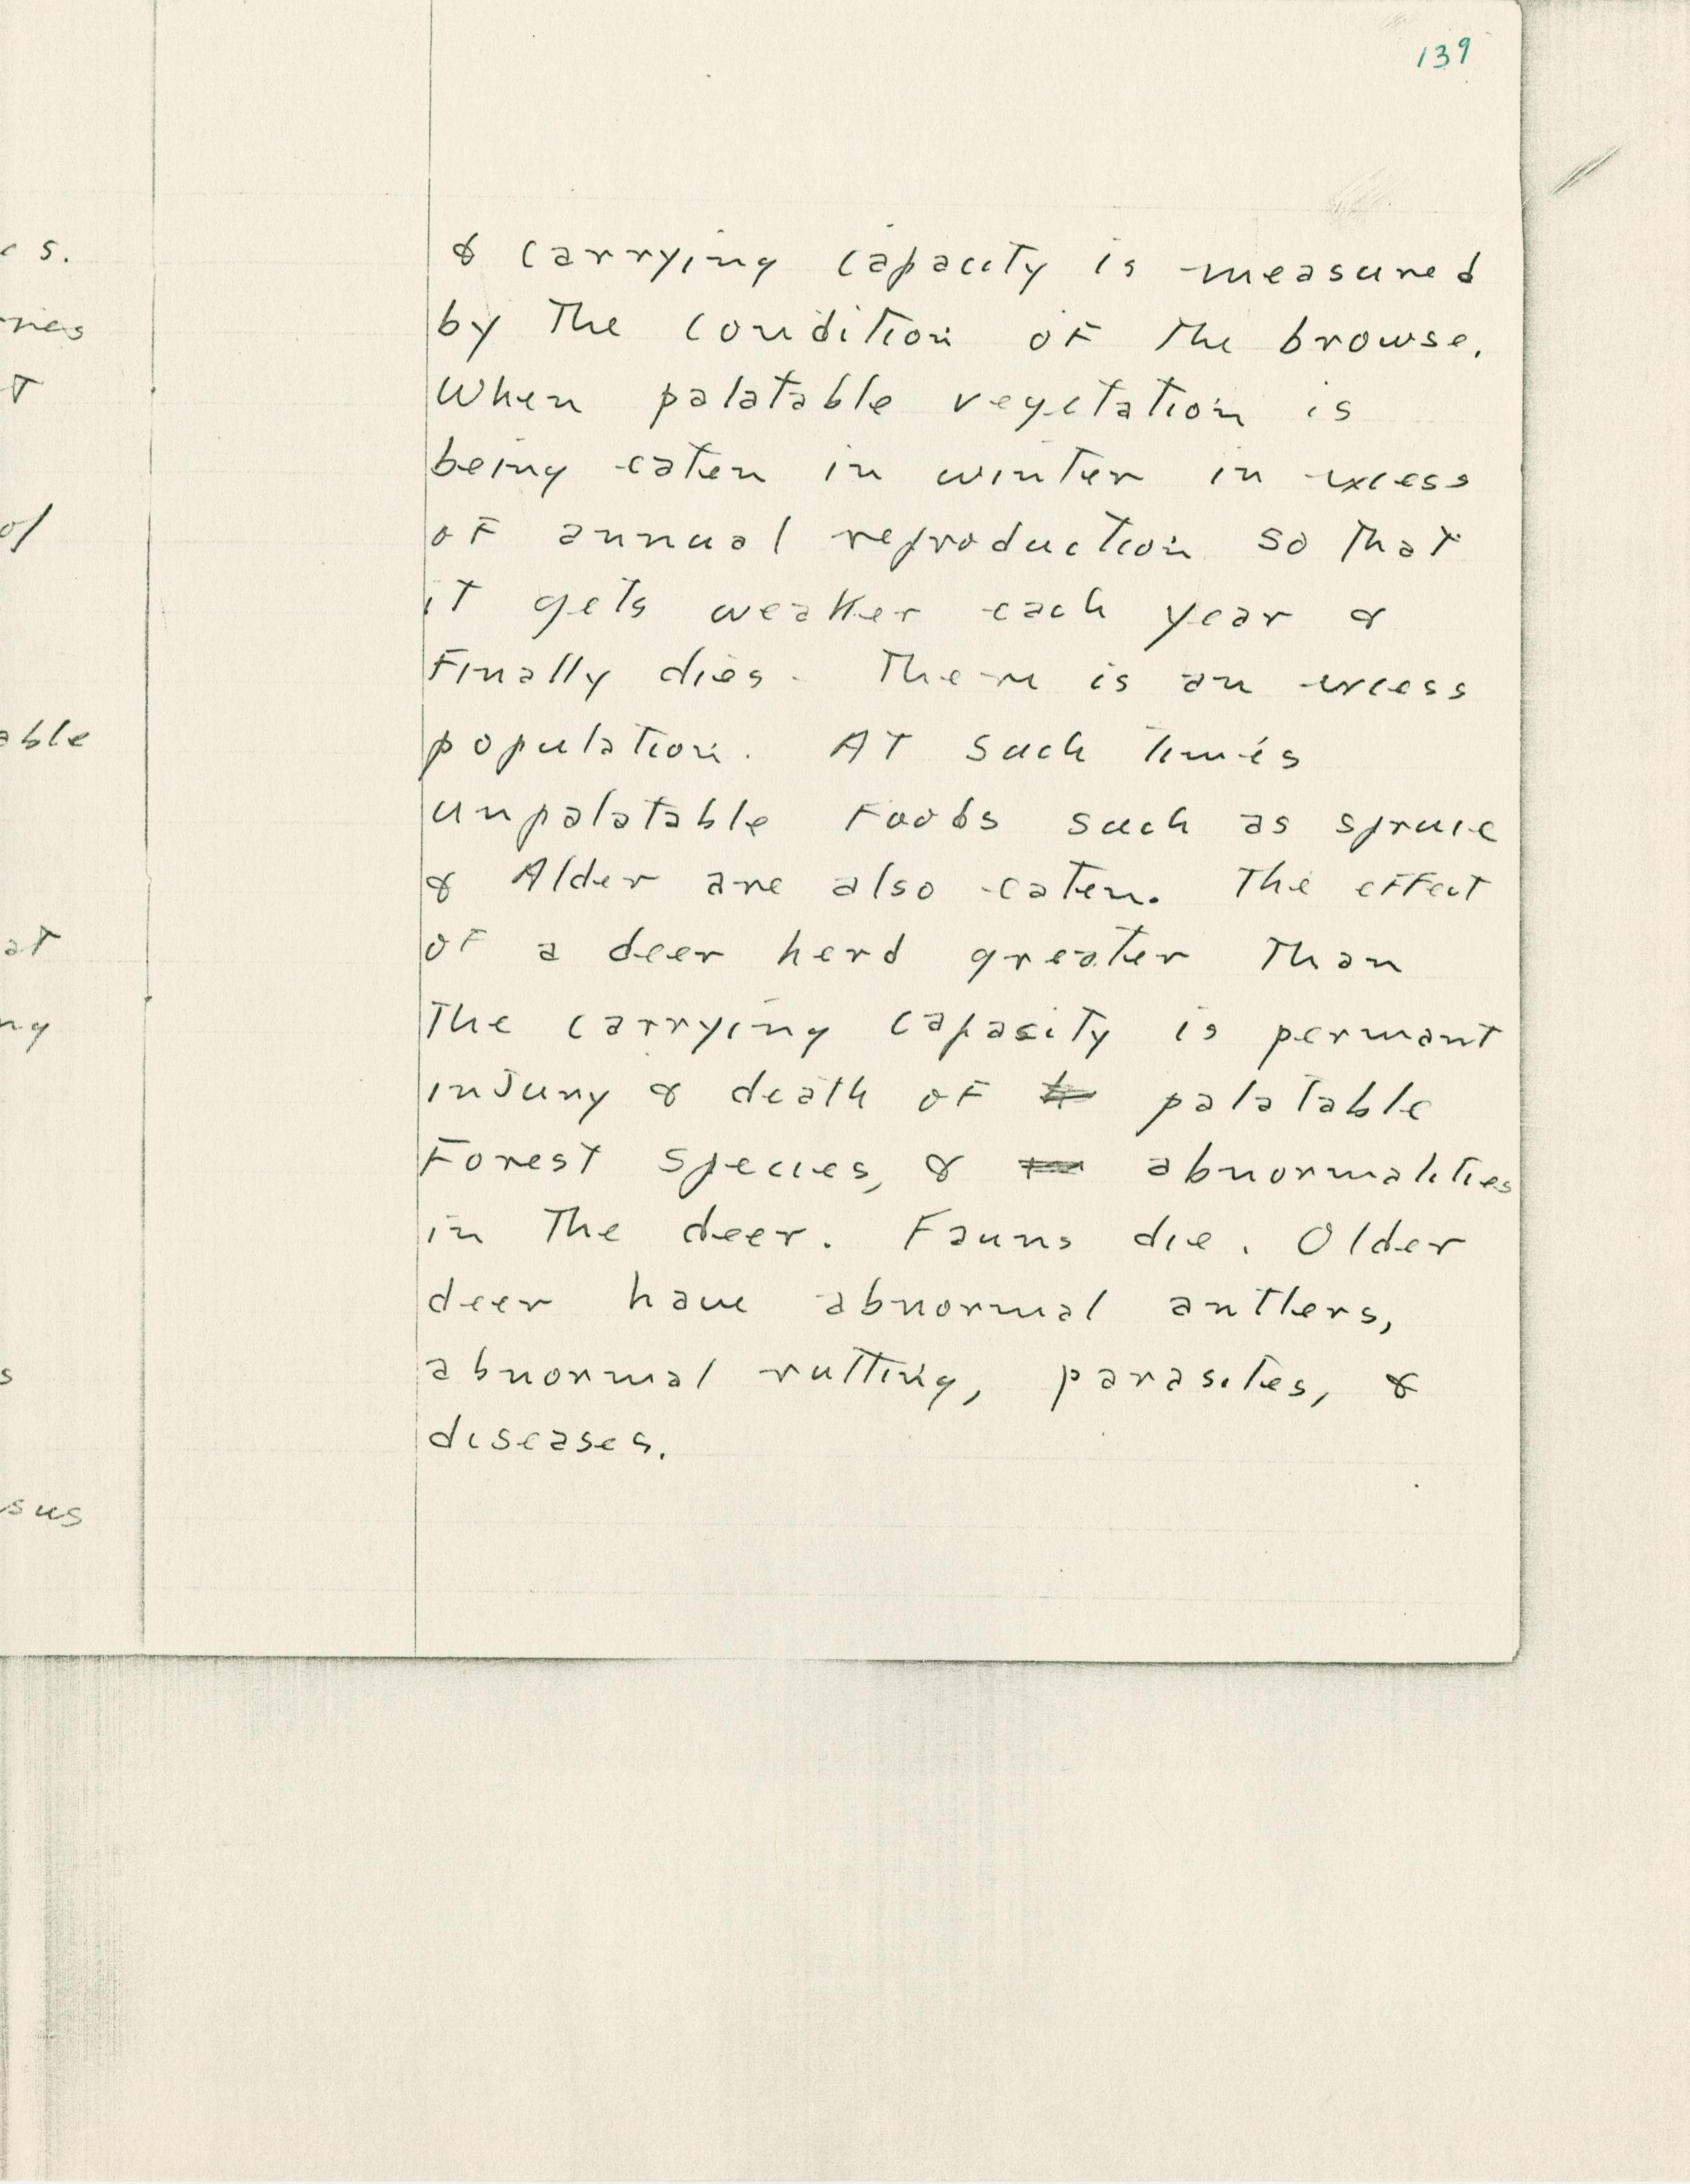 139
& carrying capacity is measured
by the condition of the browse.
When palatable vegetation is
being eaten in winter in excess
of annual reproduction so that
it gets weaker each year &
finally dies. There is an excess
population. At such times
unpalatable foods such as spruce
& Alder are also eaten. The effect
of a deer herd greater than
the carrying capacity is permant
injury & death of palatable
forest species, & abnormalities
in the deer. Fauns die. Older
deer have abnormal antlers,
abnormal rutting, parasites, &
diseases.